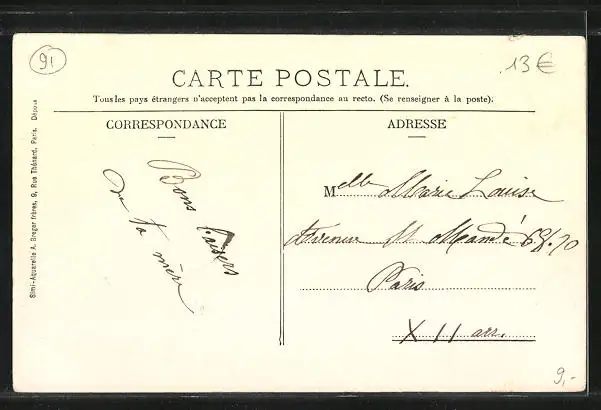 91
13€
CARTE POSTALE.
Tous les pays étrangers n'acceptent pas la correspondance au recto. (Se renseigner à la poste).
CORRESPONDANCE
Bons baisers
de ta mère
ADRESSE
Melle Marie Louise
Avenue St Mandé 68.70
Paris
XII arr.
9,-
Simi-Aquarelle A. Breger frères, 9, Rue Thénard, Paris. Déposé